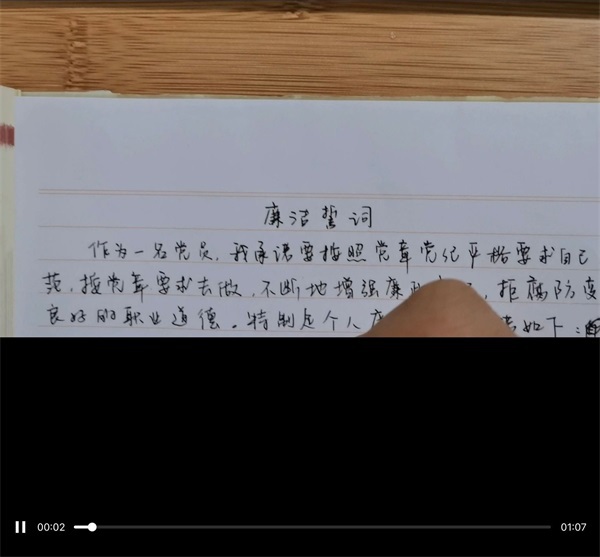 廉洁誓词
作为一名党员，我承诺要按照党章党纪严格要求自己
范，按党章要求去做，不断地增强廉，拒腐防变
良好的职业道德。特制定个人如下：
00:02 01:07